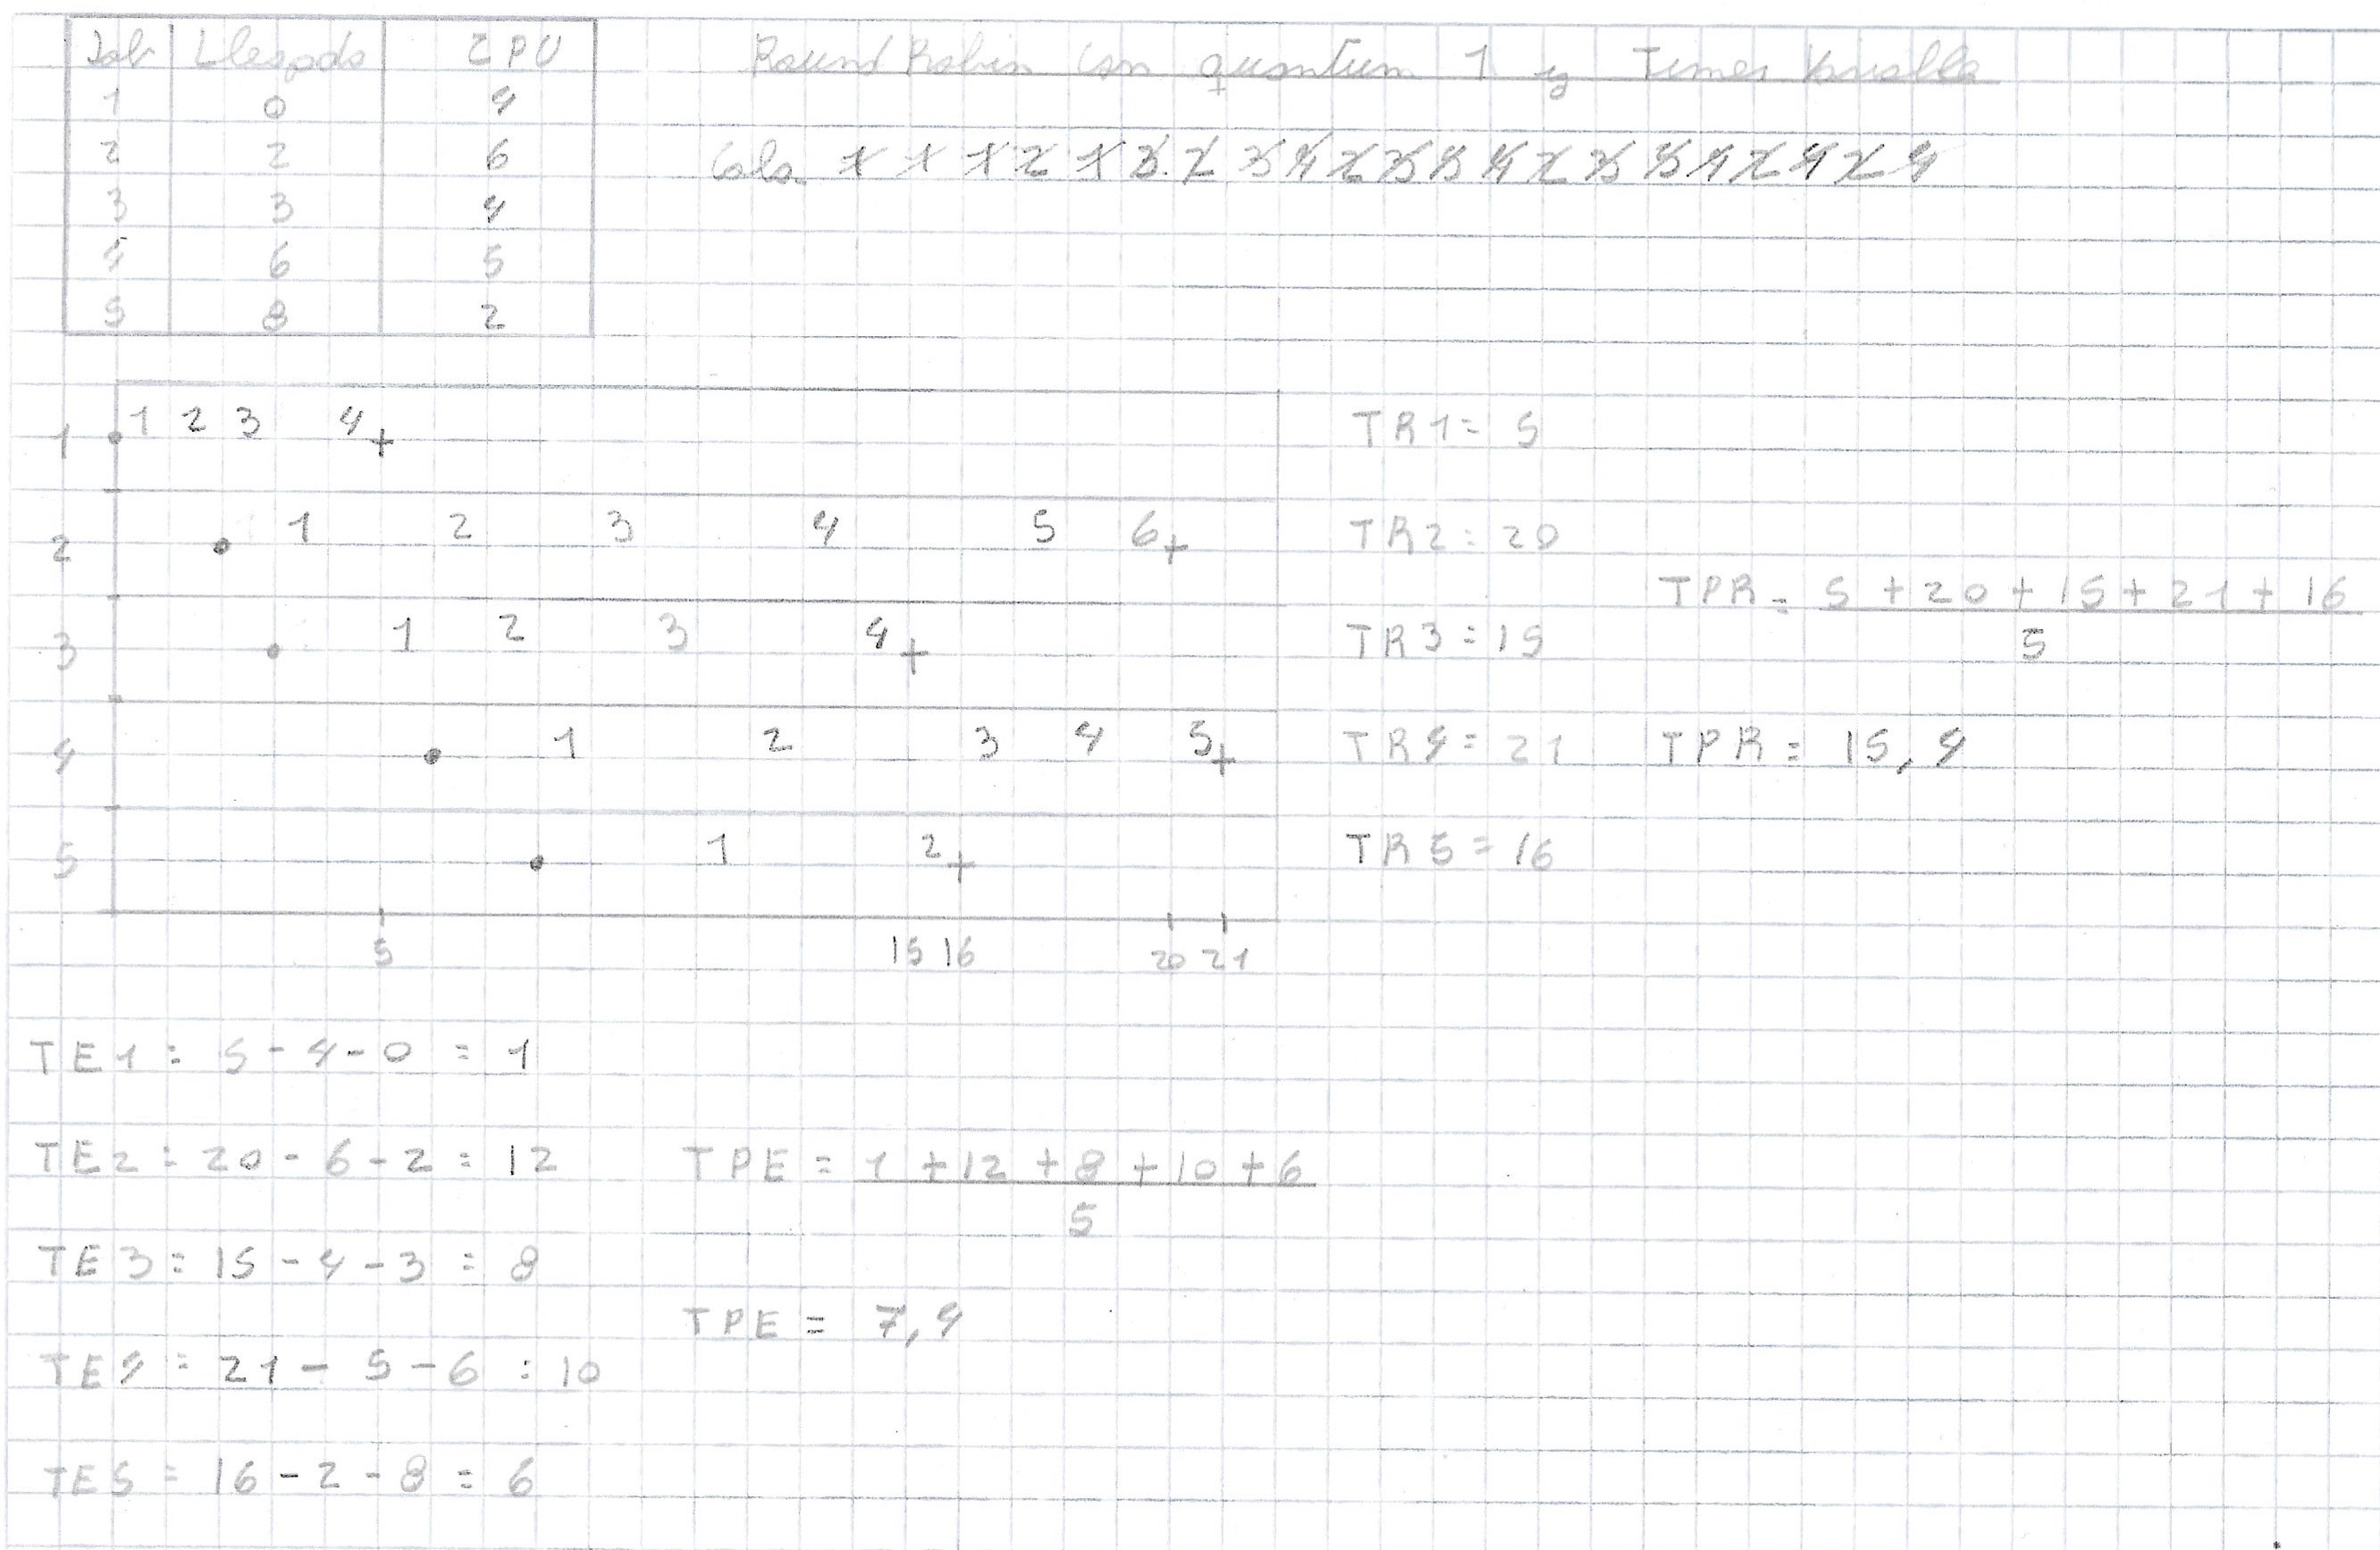 Job Llegada CPU
1 0 4
2 2 6
3 3 4
4 6 5
5 8 2
Round Robin con quantum 1 y Timer Variable
Cola. 1 1 1 2 1 3 2 3 4 2 3 5 4 2 3 5 4 2 4 2 4
1 1 2 3 4
2 1 2 3 4 5 6
3 1 2 3 4
4 1 2 3 4 5
5 1 2
5 15 16 20 21
TR1 = 5
TR2 = 20
TR3 = 15
TR4 = 21
TR5 = 16
TPR = 5 + 20 + 15 + 21 + 16
5
TPR = 15,4
TE1 = 5 - 4 - 0 = 1
TE2 = 20 - 6 - 2 = 12
TE3 = 15 - 4 - 3 = 8
TE4 = 21 - 5 - 6 = 10
TE5 = 16 - 2 - 8 = 6
TPE = 1 + 12 + 8 + 10 + 6
5
TPE = 7,4